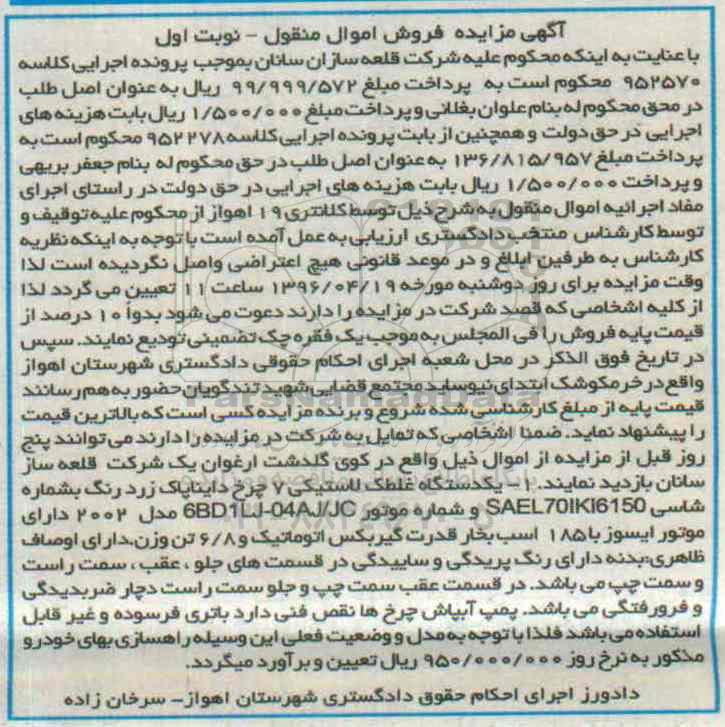 آگهی مزایده فروش اموال منقول - نوبت اول
با عنایت به اینکه محکوم علیه شرکت قلعه سازان سانان بموجب پرونده اجرایی کلاسه
۹۵۲۵۷۰ محکوم است به پرداخت مبلغ ۹۹/۹۹۹/۵۷۲ ریال به عنوان اصل طلب
در محق محکوم له بنام علوان بغلانی و پرداخت مبلغ ۱/۵۰۰/۰۰۰ ریال بابت هزینه های
اجرایی در حق دولت و همچنین از بابت پرونده اجرایی کلاسه ۹۵۲۲۷۸ محکوم است به
پرداخت مبلغ ۱۳۶/۸۱۵/۹۵۷ به عنوان اصل طلب در حق محکوم له بنام جعفر بریهی
و پرداخت ۱/۵۰۰/۰۰۰ ریال بابت هزینه های اجرایی در حق دولت در راستای اجرای
مفاد اجرائیه اموال منقول به شرح ذیل توسط کلانتری ۱۹ اهواز از محکوم علیه توقیف و
توسط کارشناس منتخب دادگستری ارزیابی به عمل آمده است با توجه به اینکه نظریه
کارشناس به طرفین ابلاغ و در موعد قانونی هیچ اعتراضی واصل نگردیده است لذا
وقت مزایده برای روز دوشنبه مورخه ۱۳۹۶/۰۴/۱۹ ساعت ۱۱ تعیین می گردد لذا
از کلیه اشخاصی که قصد شرکت در مزایده را دارند دعوت می شود بدوآ ۱۰ درصد از
قیمت پایه فروش را فی المجلس به موجب یک فقره چک تضمینی تودیع نمایند. سپس
در تاریخ فوق الذکر در محل شعبه اجرای احکام حقوقی دادگستری شهرستان اهواز
واقع در خرمکوشک ابتدای نیوساید مجتمع قضایی شهید تندگویان حضور به هم رسانند
قیمت پایه از مبلغ کارشناسی شده شروع و برنده مزایده کسی است که بالاترین قیمت
را پیشنهاد نماید. ضمنا اشخاصی که تمایل به شرکت در مزایده را دارند می توانند پنج
روز قبل از مزایده از اموال ذیل واقع در کوی گلدشت ارغوان یک شرکت قلعه ساز
سانان بازدید نمایند. ۱- یکدستگاه غلطک لاستیکی ۷ چرخ دایناپاک زرد رنگ بشماره
شاسی SAEL70IKI6150 و شماره موتور 6BD1LJ-04AJ/JC مدل ۲۰۰۲ دارای
موتور ایسوز با ۱۸۵ اسب بخار قدرت گیربکس اتوماتیک و ۶/۸ تن وزن.دارای اوصاف
ظاهری:بدنه دارای رنگ پریدگی و ساییدگی در قسمت های جلو ، عقب ، سمت راست
و سمت چپ می باشد. در قسمت عقب سمت چپ و جلو سمت راست دچار ضربدیدگی
و فرورفتگی می باشد. پمپ آبپاش چرخ ها نقص فنی دارد باتری فرسوده و غیر قابل
استفاده می باشد فلذا با توجه به مدل و وضعیت فعلی این وسیله راهسازی بهای خودرو
مذکور به نرخ روز ۹۵۰/۰۰۰/۰۰۰ ریال تعیین و برآورد میگردد.
دادورز اجرای احکام حقوق دادگستری شهرستان اهواز- سرخان زاده
ParsNamadData